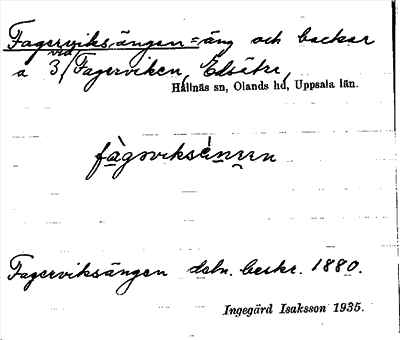 Fagerviksängen = äng och backar
vid
a 3/ Fagerviken, Edsätra,
Hållnäs sn, Olands hd, Uppsala län.
Fagerviksängen dsbn. beskr. 1880.
Ingegärd Isaksson 1935.